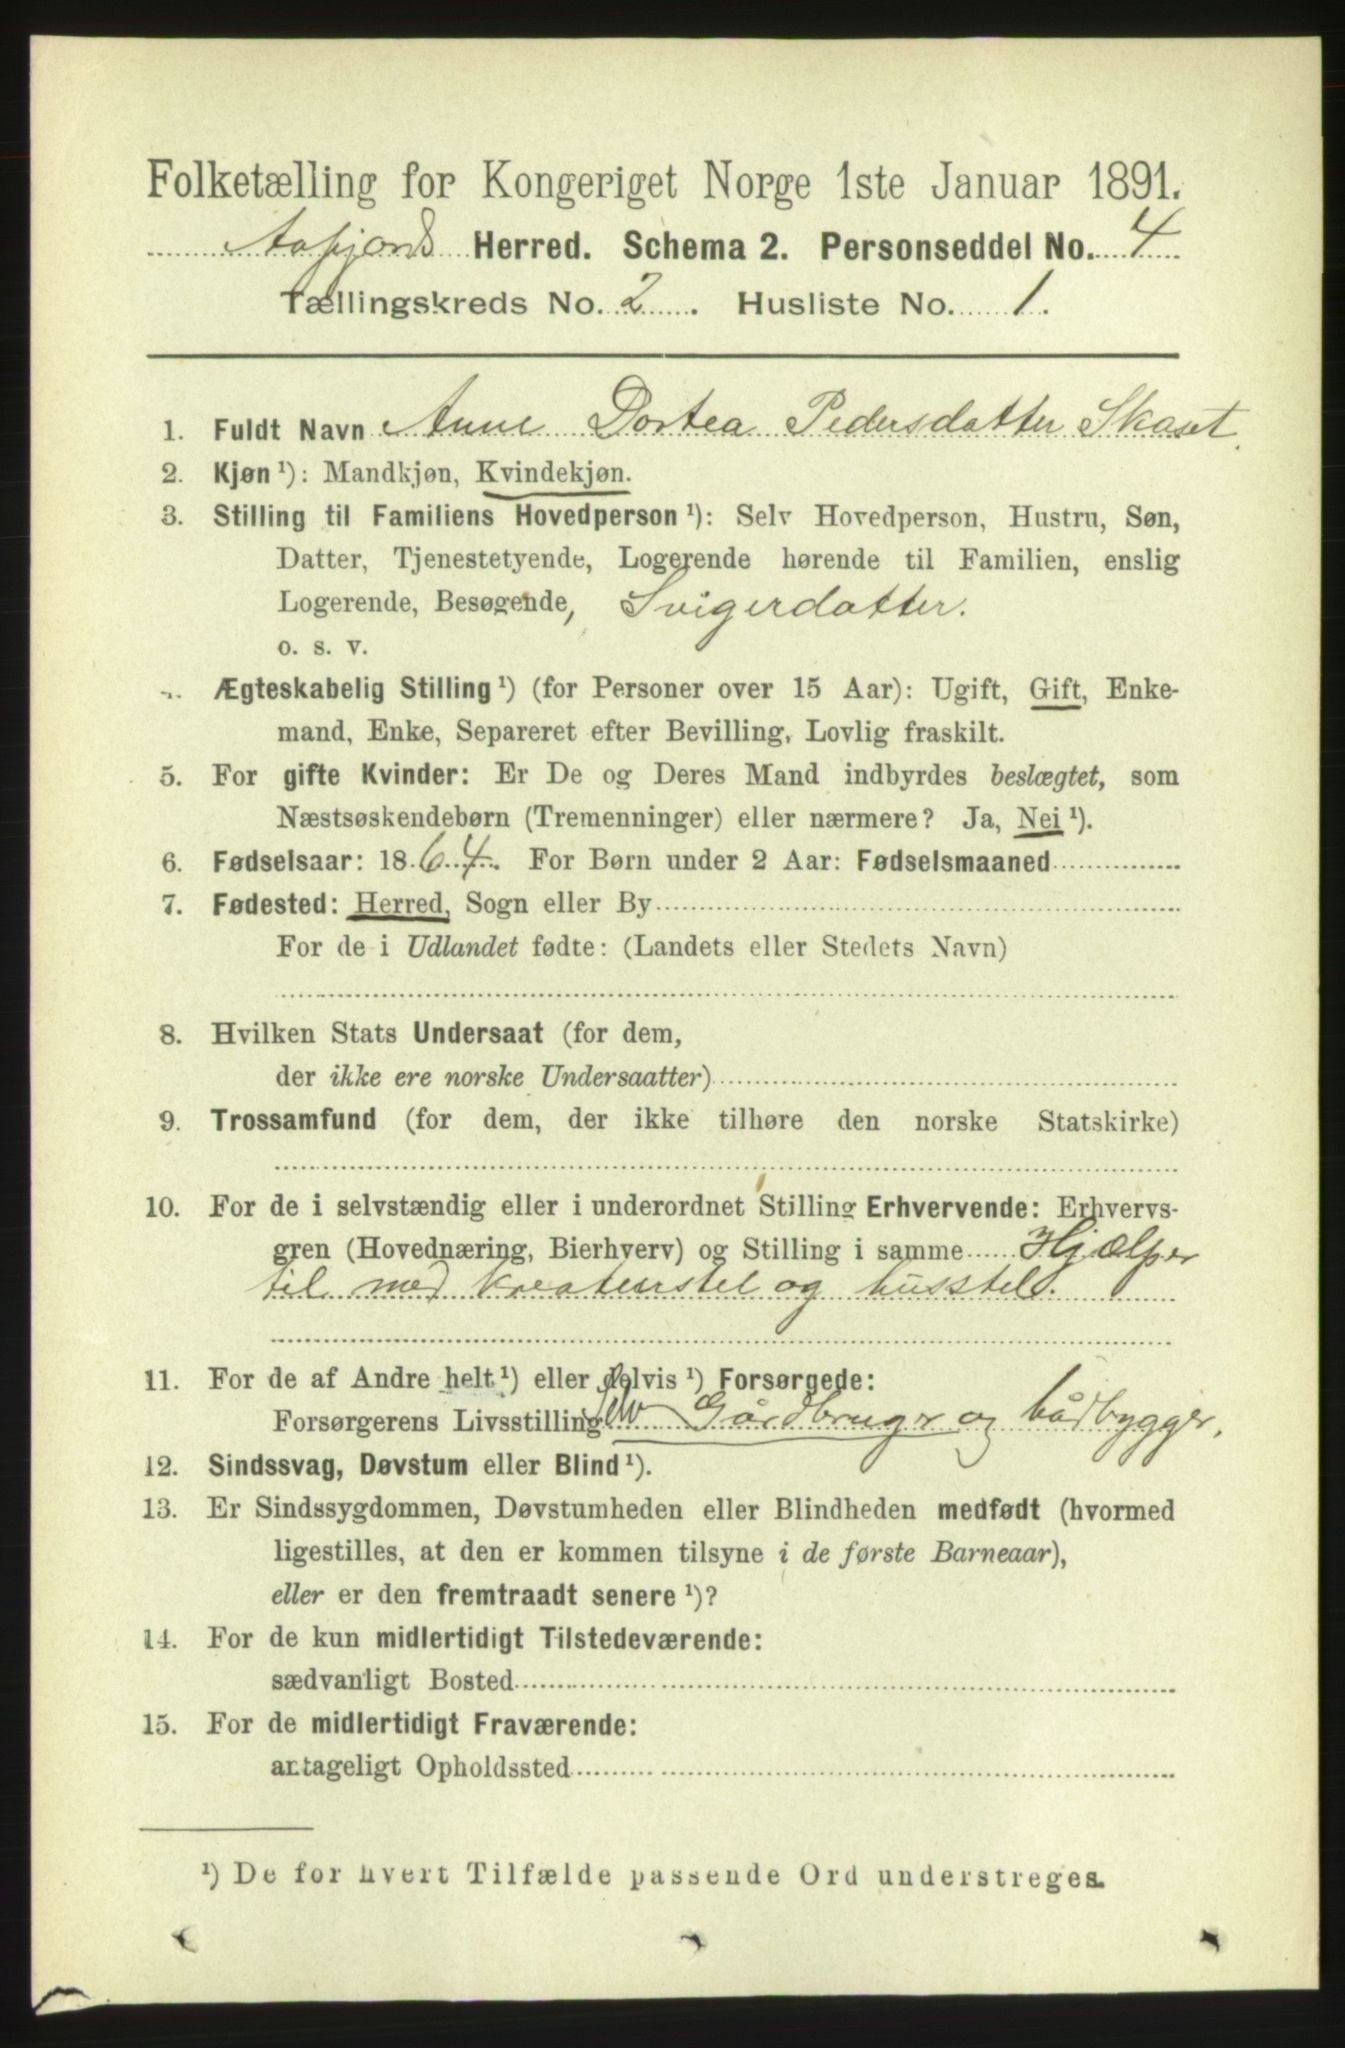 Folketælling for Kongeriget Norge 1ste Januar 1891.
Aafjords Herred. Schema 2. Personseddel No. 4
Tællingskreds No. 2. Husliste No. 1.
1. Fuldt Navn Anne Dortea Pedersdatter Skaset.
2. Kjøn ¹): Mandkjøn, Kvindekjøn.
3. Stilling til Familiens Hovedperson ¹): Selv Hovedperson, Hustru, Søn,
Datter, Tjenestetyende, Logerende hørende til Familien, enslig
Logerende, Besøgende, Svigerdatter.
o. s. v.
4. Ægteskabelig Stilling ¹) (for Personer over 15 Aar): Ugift, Gift, Enke-
mand, Enke, Separeret efter Bevilling, Lovlig fraskilt.
5. For gifte Kvinder: Er De og Deres Mand indbyrdes beslægtet, som
Næstsøskendebørn (Tremenninger) eller nærmere? Ja, Nei ¹).
6. Fødselsaar: 1864. For Børn under 2 Aar: Fødselsmaaned
7. Fødested: Herred, Sogn eller By
For de i Udlandet fødte: (Landets eller Stedets Navn)
8. Hvilken Stats Undersaat (for dem,
der ikke ere norske Undersaatter)
9. Trossamfund (for dem, der ikke tilhøre den norske Statskirke)
10. For de i selvstændig eller i underordnet Stilling Erhvervende: Erhvervs-
gren (Hovednæring, Bierhverv) og Stilling i samme Hjælper
til med kreaturstel og husstel.
11. For de af Andre helt ¹) eller delvis ¹) Forsørgede:
Forsørgerens Livsstilling Selv Gårdbruger og bådbygger.
12. Sindssvag, Døvstum eller Blind ¹).
13. Er Sindssygdommen, Døvstumheden eller Blindheden medfødt (hvormed
ligestilles, at den er kommen tilsyne i de første Barneaar),
eller er den fremtraadt senere ¹)?
14. For de kun midlertidigt Tilstedeværende:
sædvanligt Bosted
15. For de midlertidigt Fraværende:
antageligt Opholdssted
¹) De for hvert Tilfælde passende Ord understreges.